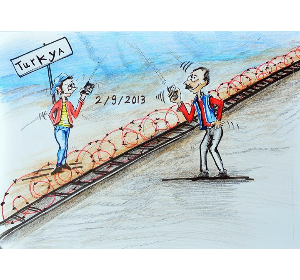 Turkya
2/9/2013